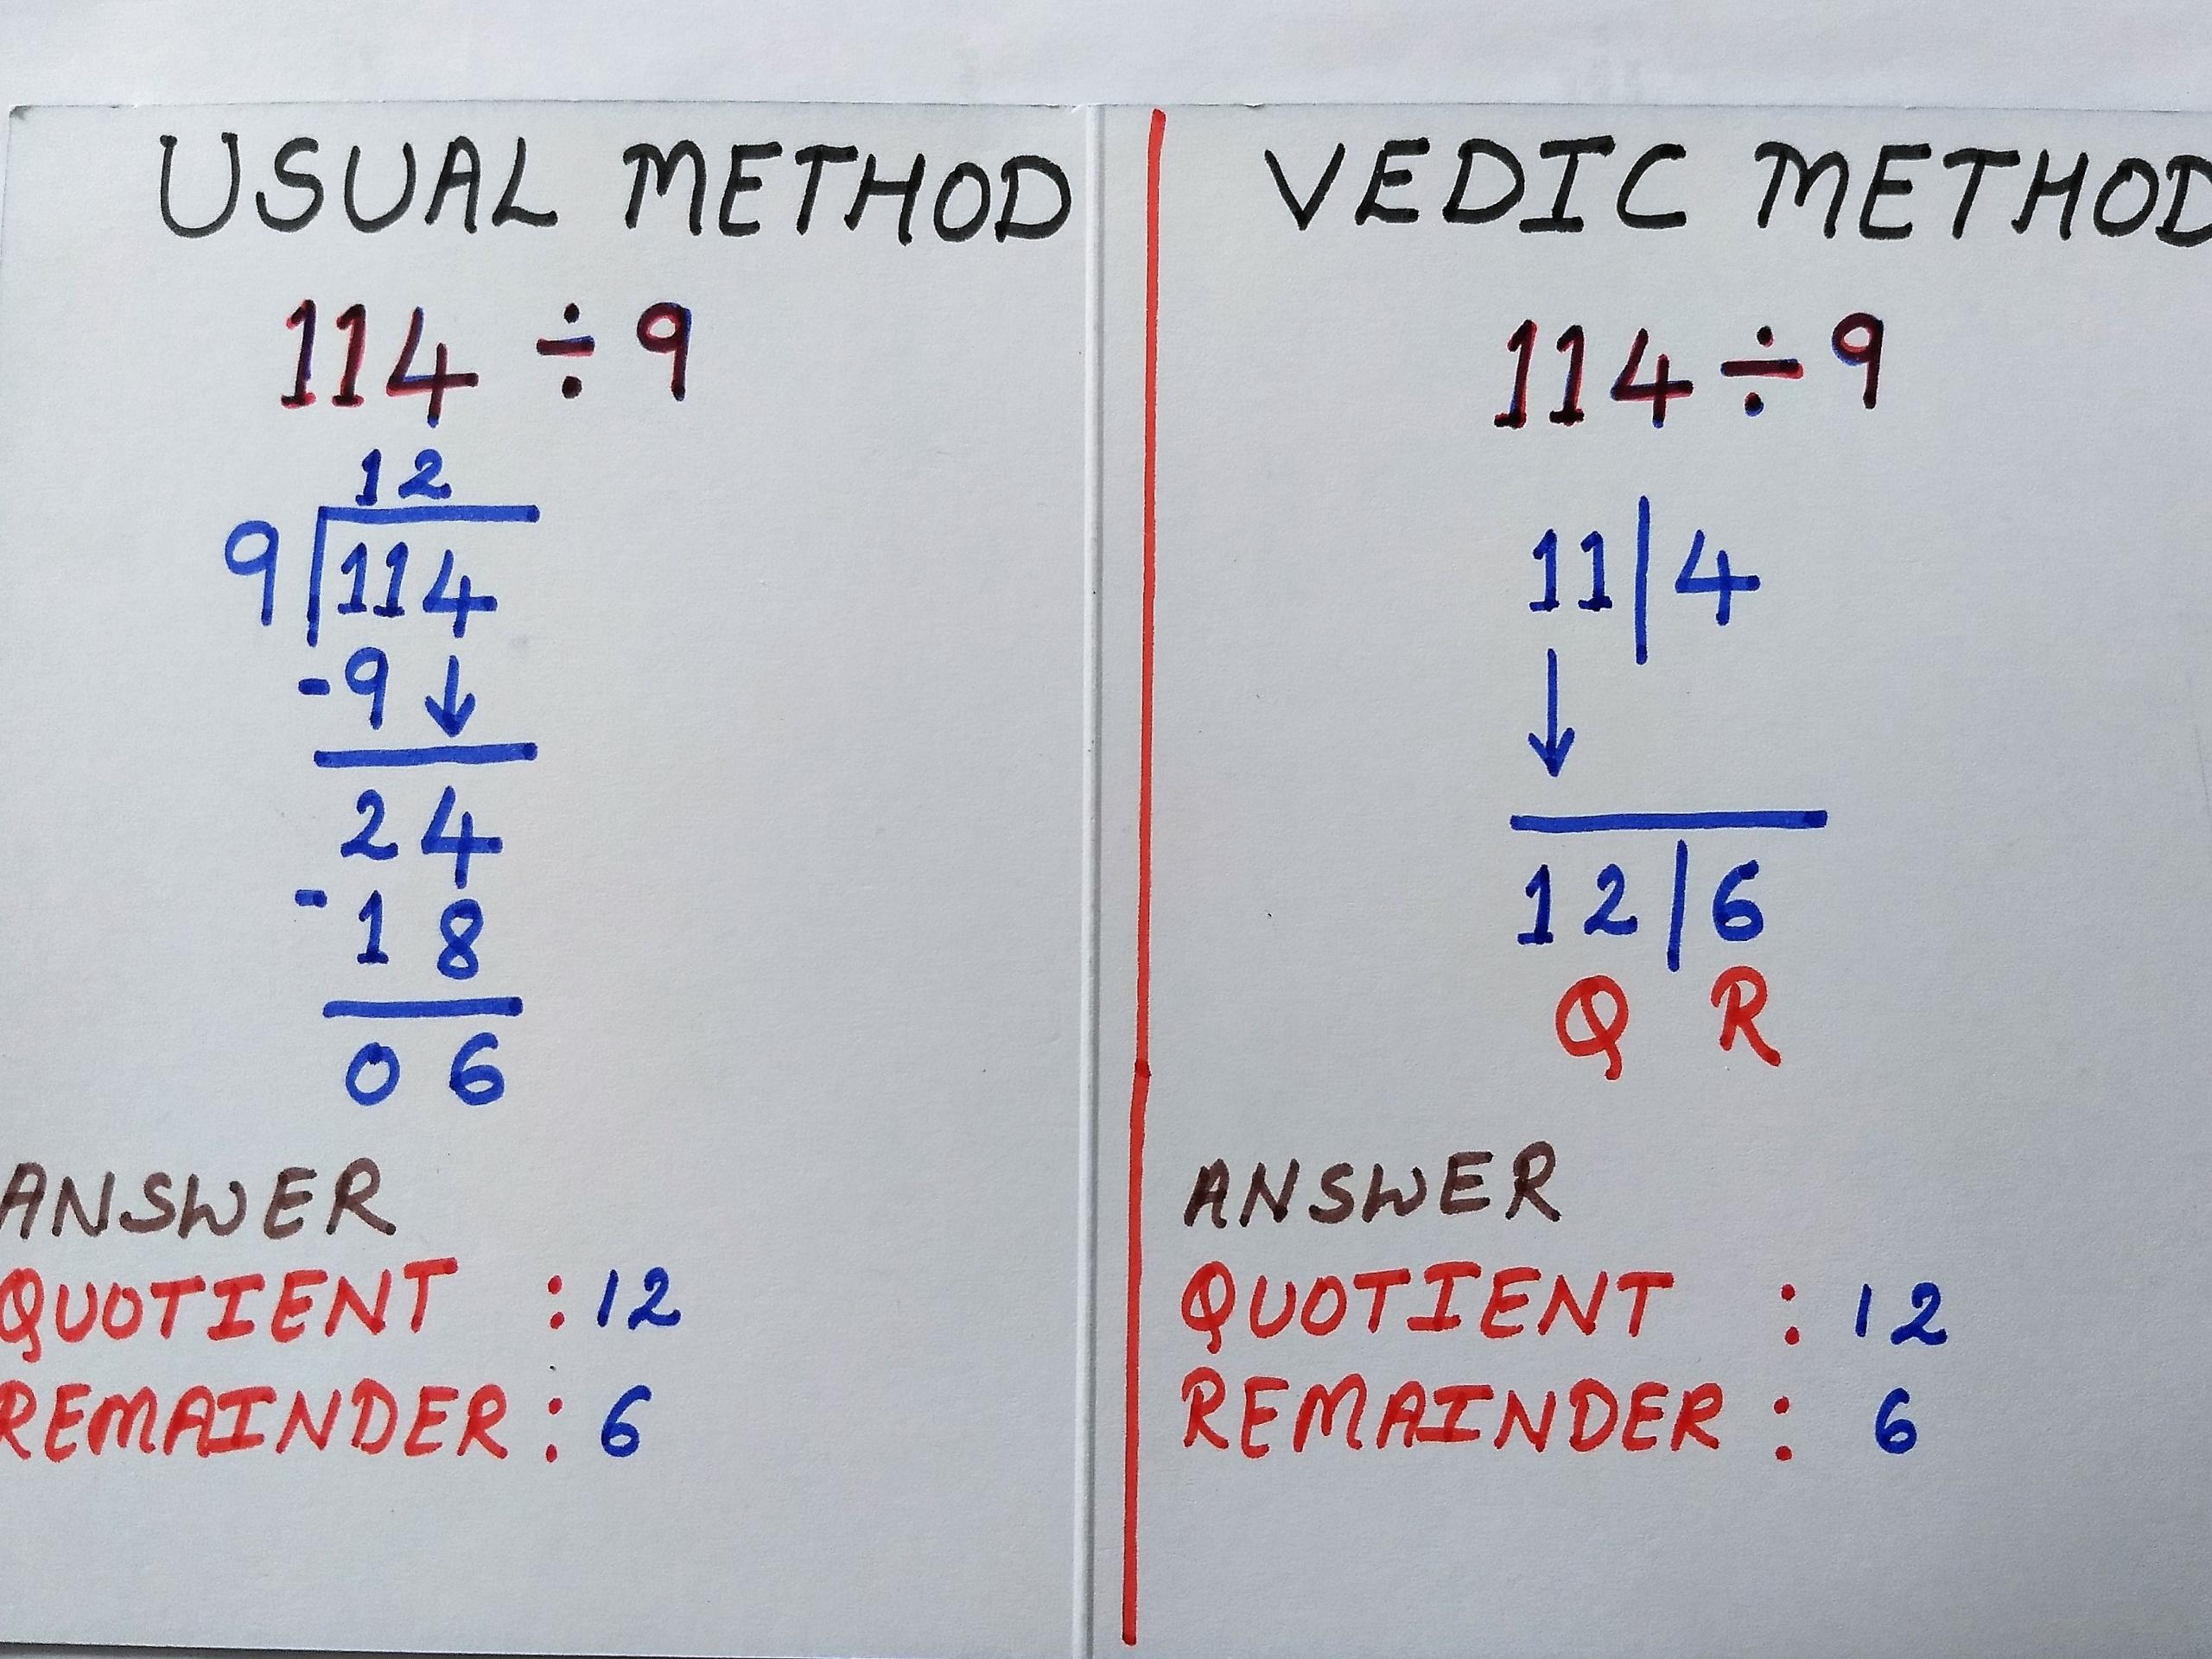 USUAL METHOD
114 ÷ 9
12
9 114
-9 ↓
24
-18
06
ANSWER
QUOTIENT : 12
REMAINDER : 6
VEDIC METHOD
114 ÷ 9
11 | 4
↓
12 | 6
Q R
ANSWER
QUOTIENT : 12
REMAINDER : 6